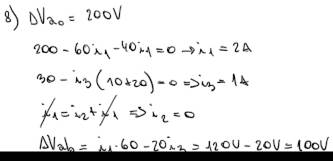 8) ΔVₐₒ = 200V
200 - 60i₁ - 40i₁ = 0 → i₁ = 2A
30 - i₃ (10+20) = 0 ⇒ i₃ = 1A
i₁ = i₂ + i₁ ⇒ i₂ = 0
ΔVₐb = i₁·60 - 20i₃ = 120V - 20V = 100V